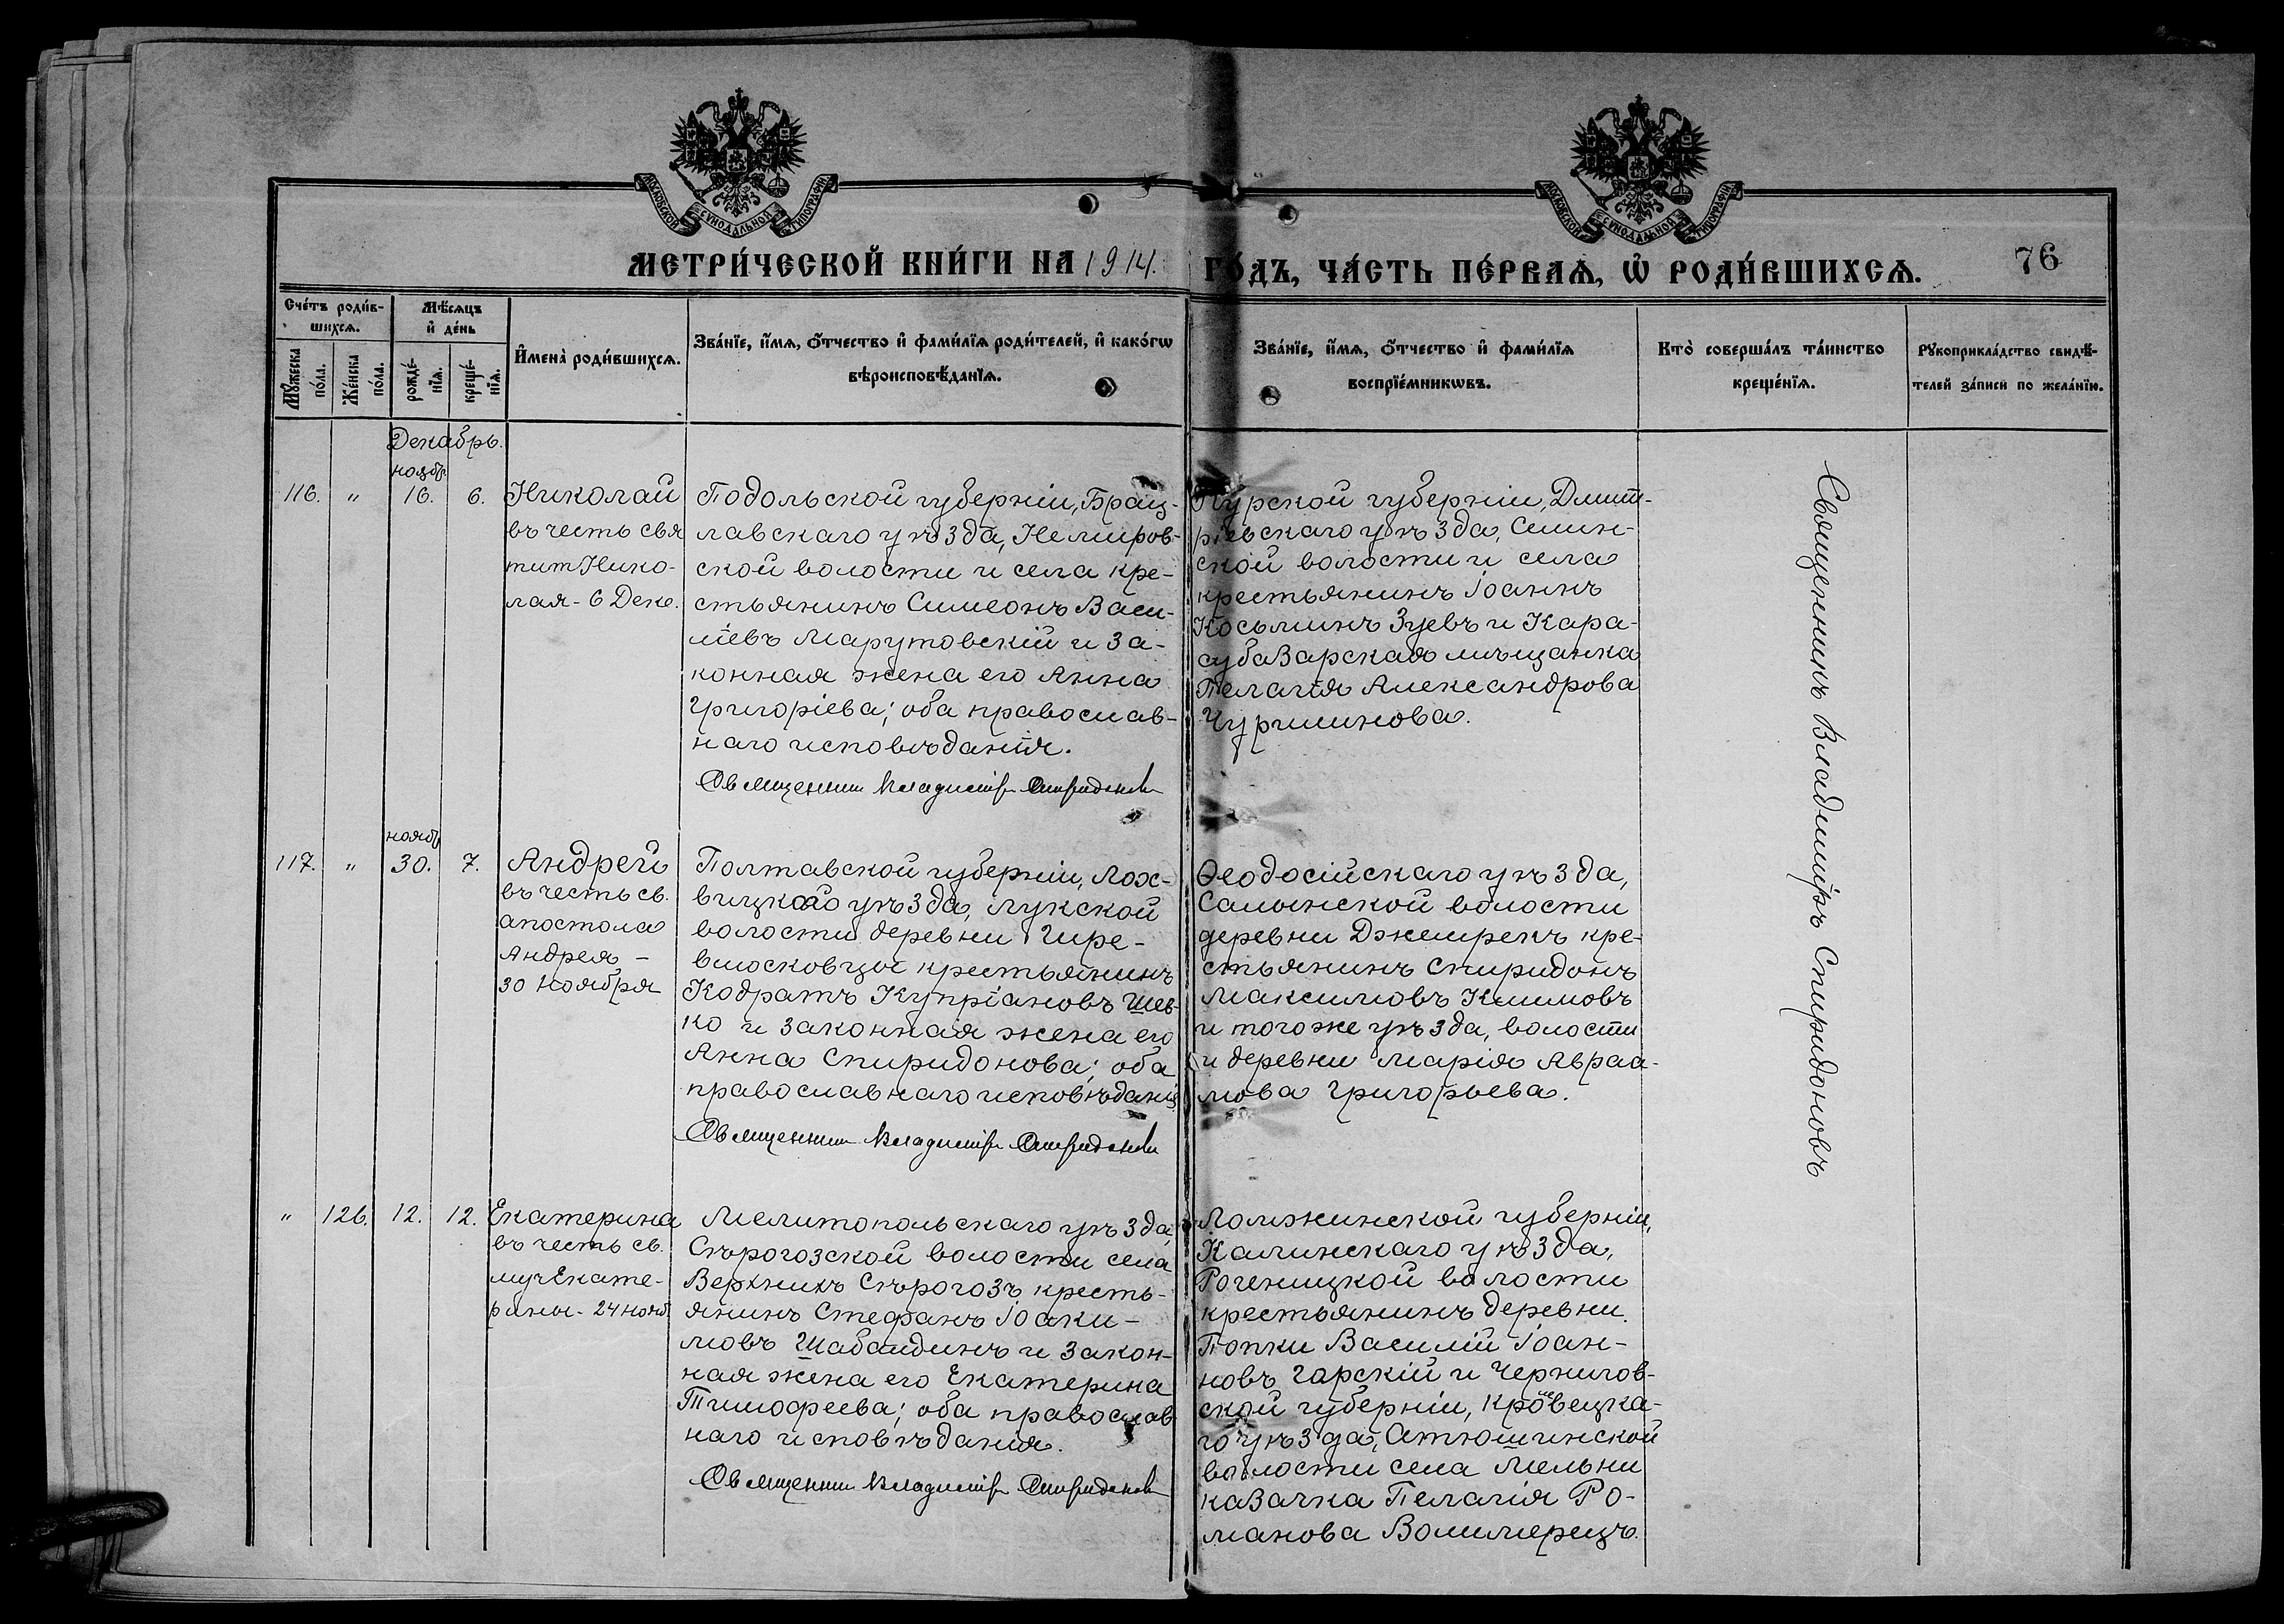 МОСКОВСКОЙ СѴНОДАЛЬНОЙ ТИПОГРАФІИ
МОСКОВСКОЙ СѴНОДАЛЬНОЙ ТИПОГРАФІИ
МЕТРИ́ЧЕСКОЙ КНИ́ГИ НА 1914. ГО́ДЪ, ЧА́СТЬ ПЕ́РВАѦ, Ѡ҆ РОДИ́ВШИХСѦ.
76
Сче́тъ роди́в-
шихсѧ.
Мꙋ́жеска
по́ла.
Же́нска
по́ла.
Мѣ́сѧцъ
и҆ де́нь
рожде́-
нїѧ.
креще́-
нїѧ.
И҆мена̀ роди́вшихсѧ.
Зва́нїе, и҆́мѧ, ѻ҆́тчество и҆ фами́лїѧ роди́телей, и҆ како́гѡ
вѣроисповѣ́данїѧ.
Зва́нїе, и҆́мѧ, ѻ҆́тчество и҆ фами́лїѧ
воспрїе́мникѡвъ.
Кто̀ соверша́лъ та́инство
креще́нїѧ.
Рꙋкоприкла́дство свидѣ́-
телей за́писи по жела́нїю.
Декабрь.
нояб.
116. " 16. 6.
Николай
въ честь свя
тит Нико-
лая - 6 Дек.
Подольской губерніи, Брац-
лавскаго уѣзда, Немиров-
ской волости и села кре-
стьянинъ Симеонъ Васи-
ліевъ Марутовскій и за-
конная жена его Анна
Григоріева; оба православ-
наго исповѣданія.
Священник Владиміръ Спиридонов
Курской губерніи, Дмит-
ріевскаго уѣзда, Смин-
ской волости и села
крестьянинъ Іоаннъ
Косьминъ Зуевъ и Кара-
субазарская мѣщанка
Пелагія Александрова
Чуршинова.
Священникъ Владиміръ Спиридоновъ
нояб
117. " 30. 7.
Андрей
въ честь св.
апостола
Андрея -
30 Ноября
Полтавской губерніи, Лох-
вицкаго уѣзда, Лукской
волости деревни Гире-
вмосковцы крестьянинъ
Кодратъ Купріановъ Шев-
ко и законная жена его
Анна Спиридонова; оба
православнаго исповѣданія
Священник Владиміръ Спиридонов
Ѳеодосійскаго уѣзда,
Салынской волости
деревни Джемрекъ кре-
стьянинъ Спиридонъ
Максимовъ Климовъ
и того же уѣзда, волости
и деревни Марія Авраа-
мова Григорьева.
" 126. 12. 12.
Екатерина
въ честь св.
муч Екате-
рины - 24 нояб
Мелитопольскаго уѣзда,
Сѣрогозской волости села
Верхнихъ Сѣрогозъ кресть-
янинъ Стефанъ Іоаки-
мовъ Шабалдинъ и закон-
ная жена его Екатерина
Тимофеева; оба православ
наго исповѣданія.
Священник Владиміръ Спиридонов
Ломжинской губерніи,
Калинскаго уѣзда,
Рогеницкой волости
крестьянинъ деревни
Попки Василій Іоан-
новъ Гарскій и Чернигов-
ской губерніи, Кролевецка-
го уѣзда, Атюшинской
волости села Мельни
казачка Пелагія Ро-
манова Волимерецъ.